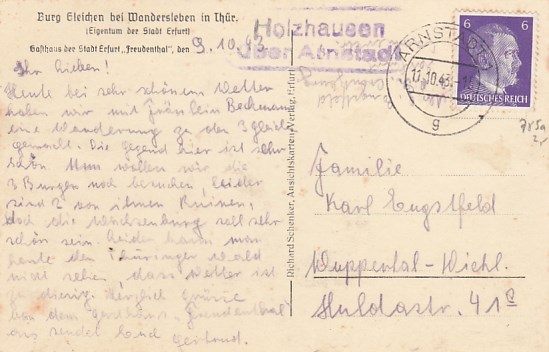 Burg Gleichen bei Wandersleben in Thür.
(Eigentum der Stadt Erfurt)
Gasthaus der Stadt Erfurt „Freudenthal“, den 9.10.43
Holzhausen
über Arnstadt
ARNSTADT
11.10.43
g
6 6
DEUTSCHES REICH
Ihr Lieben!
Heute bei sehr schönem Wetter
haben wir mit Fräulein
eine Wanderung zu den 3 Gleichen
gemacht. Die Gegend hier ist sehr
schön. Nun wollen wir die
3 Burgen noch besuchen, leider
sind 2 von ihnen Ruinen,
doch die Wachsenburg soll sehr
schön sein. Leider kann man
heute den Thüringer Wald
nicht sehen, dass Wetter ist
zu diesig. Herzliche Grüsse
von dem Gasthaus „Freudenthal“
aus sendet Euch Gertraud.
Richard Schenker, Ansichtskarten-Verlag, Erfurt
Familie
Karl Engstfeld
Wuppertal-Vichl.
Huldastr. 41c